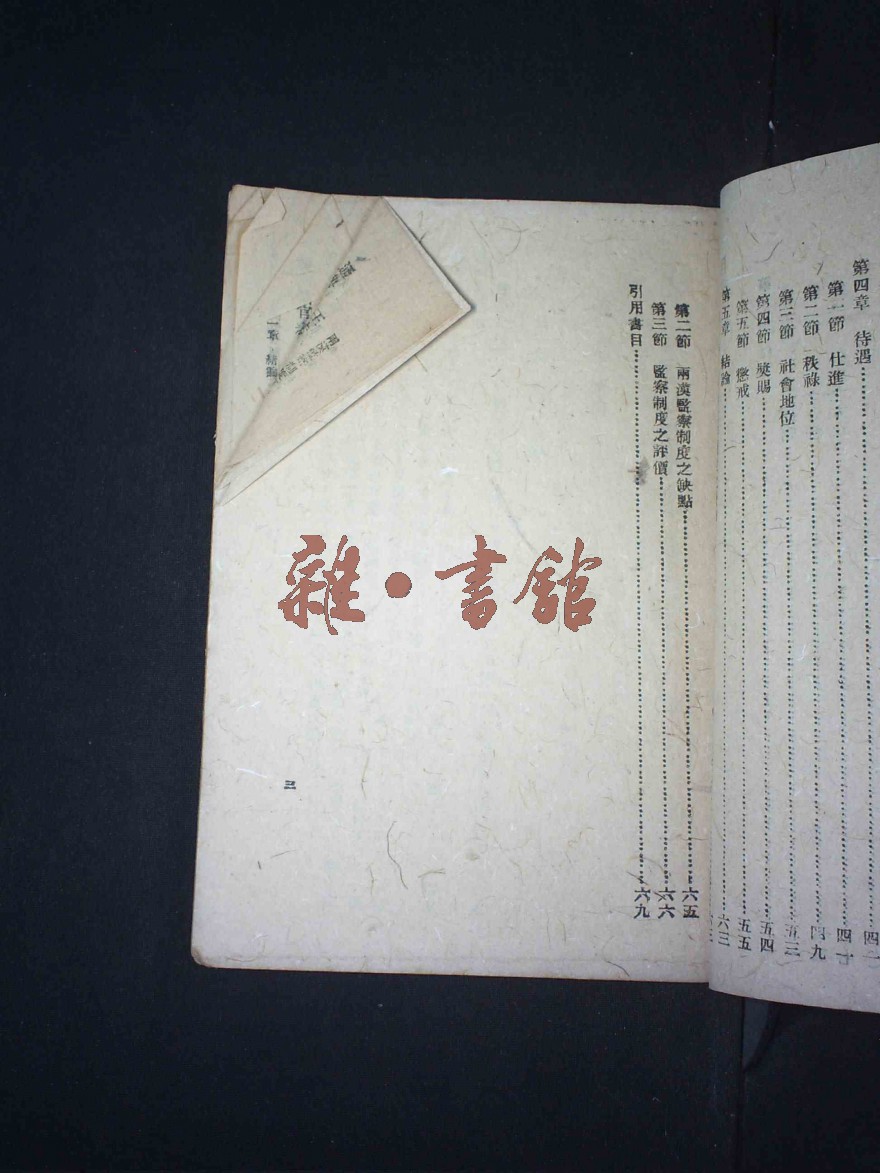 第四章 待遇
第一節 仕進
第二節 秩祿
第三節 社會地位 五三
第四節 獎賜 五四
第五節 懲戒 五五
第五章 結論 六三
第二節 兩漢監察制度之缺點 六五
第三節 監察制度之評價 六六
引用書目 六九
三
雜·書館